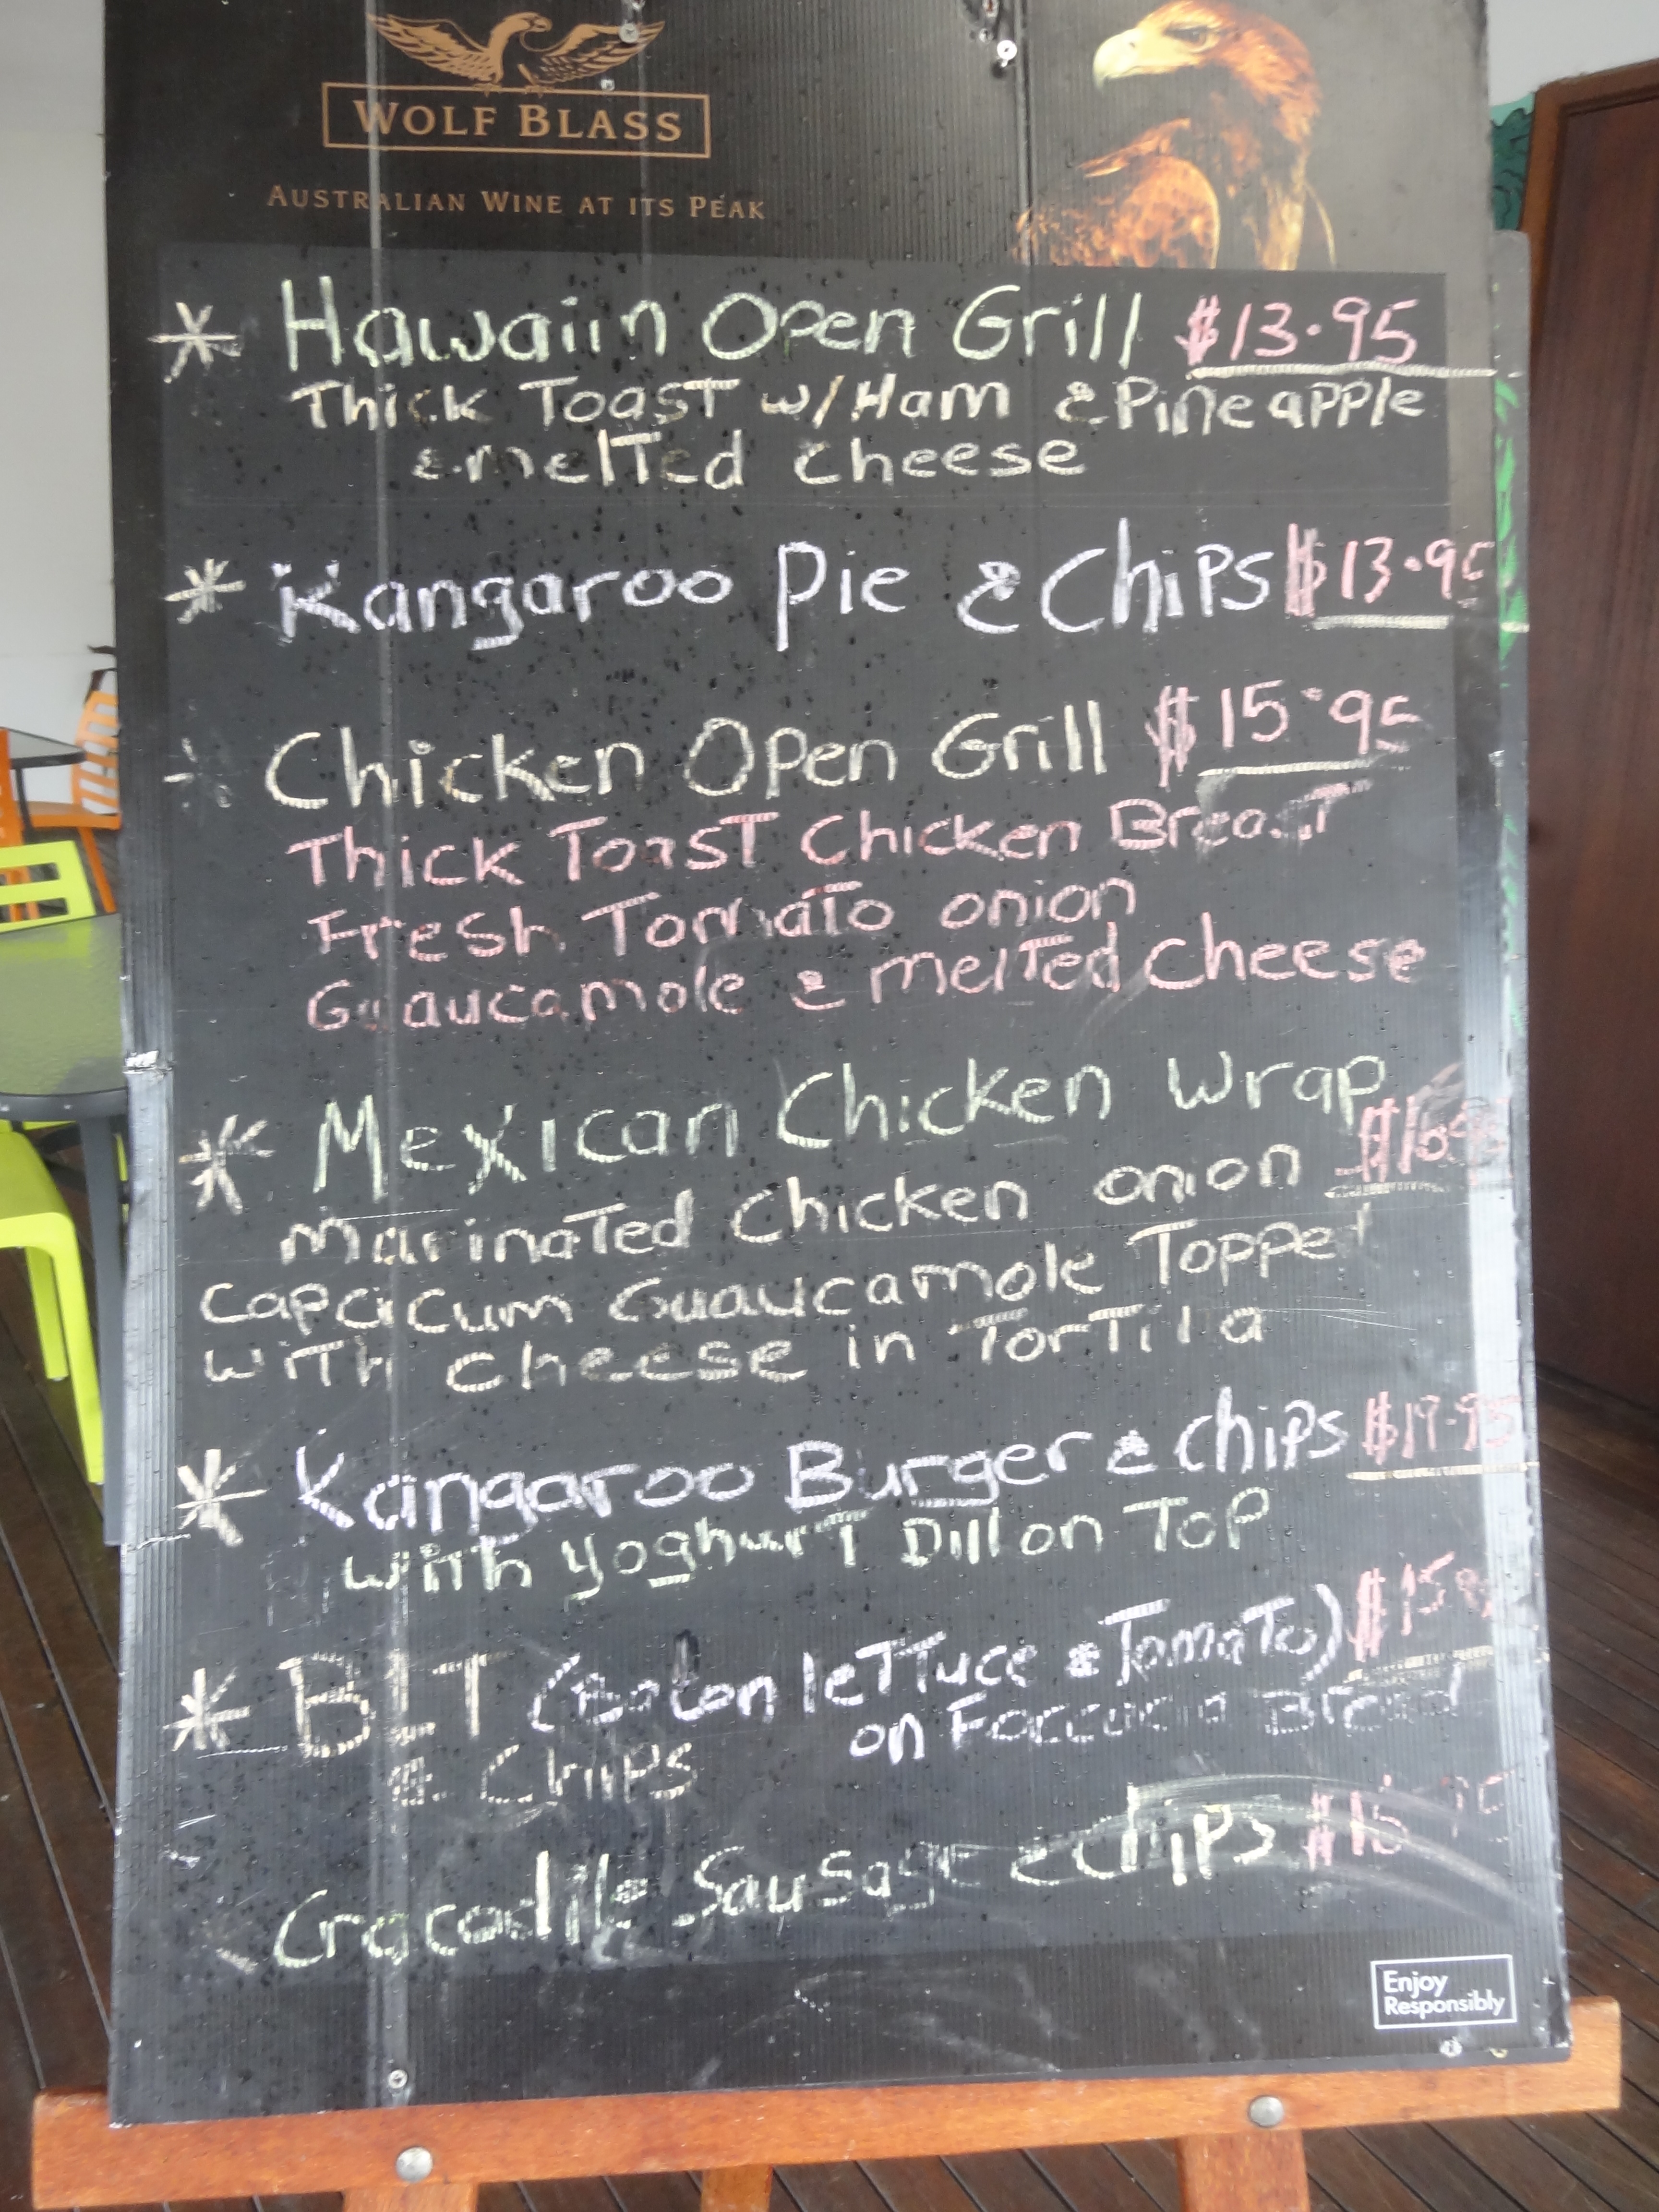 WOLF BLASS
AUSTRALIAN WINE AT ITS PEAK
* Hawaiin Open Grill $13.95
Thick Toast w/Ham & Pineapple
& melted cheese
* Kangaroo Pie & Chips $13.95
* Chicken Open Grill $15.95
Thick Toast Chicken Breast
Fresh Tomato onion
Guaucamole & melted cheese
* Mexican Chicken Wrap
Marinated Chicken onion
capcicum Guaucamole Topped
with cheese in Tortilla
* Kangaroo Burger & chips $19.95
with yoghurt Dill on Top
* BLT (Bacon lettuce & Tomato)
on Foccacia Bread
& Chips
Crocodile Sausage & Chips
Enjoy
Responsibly